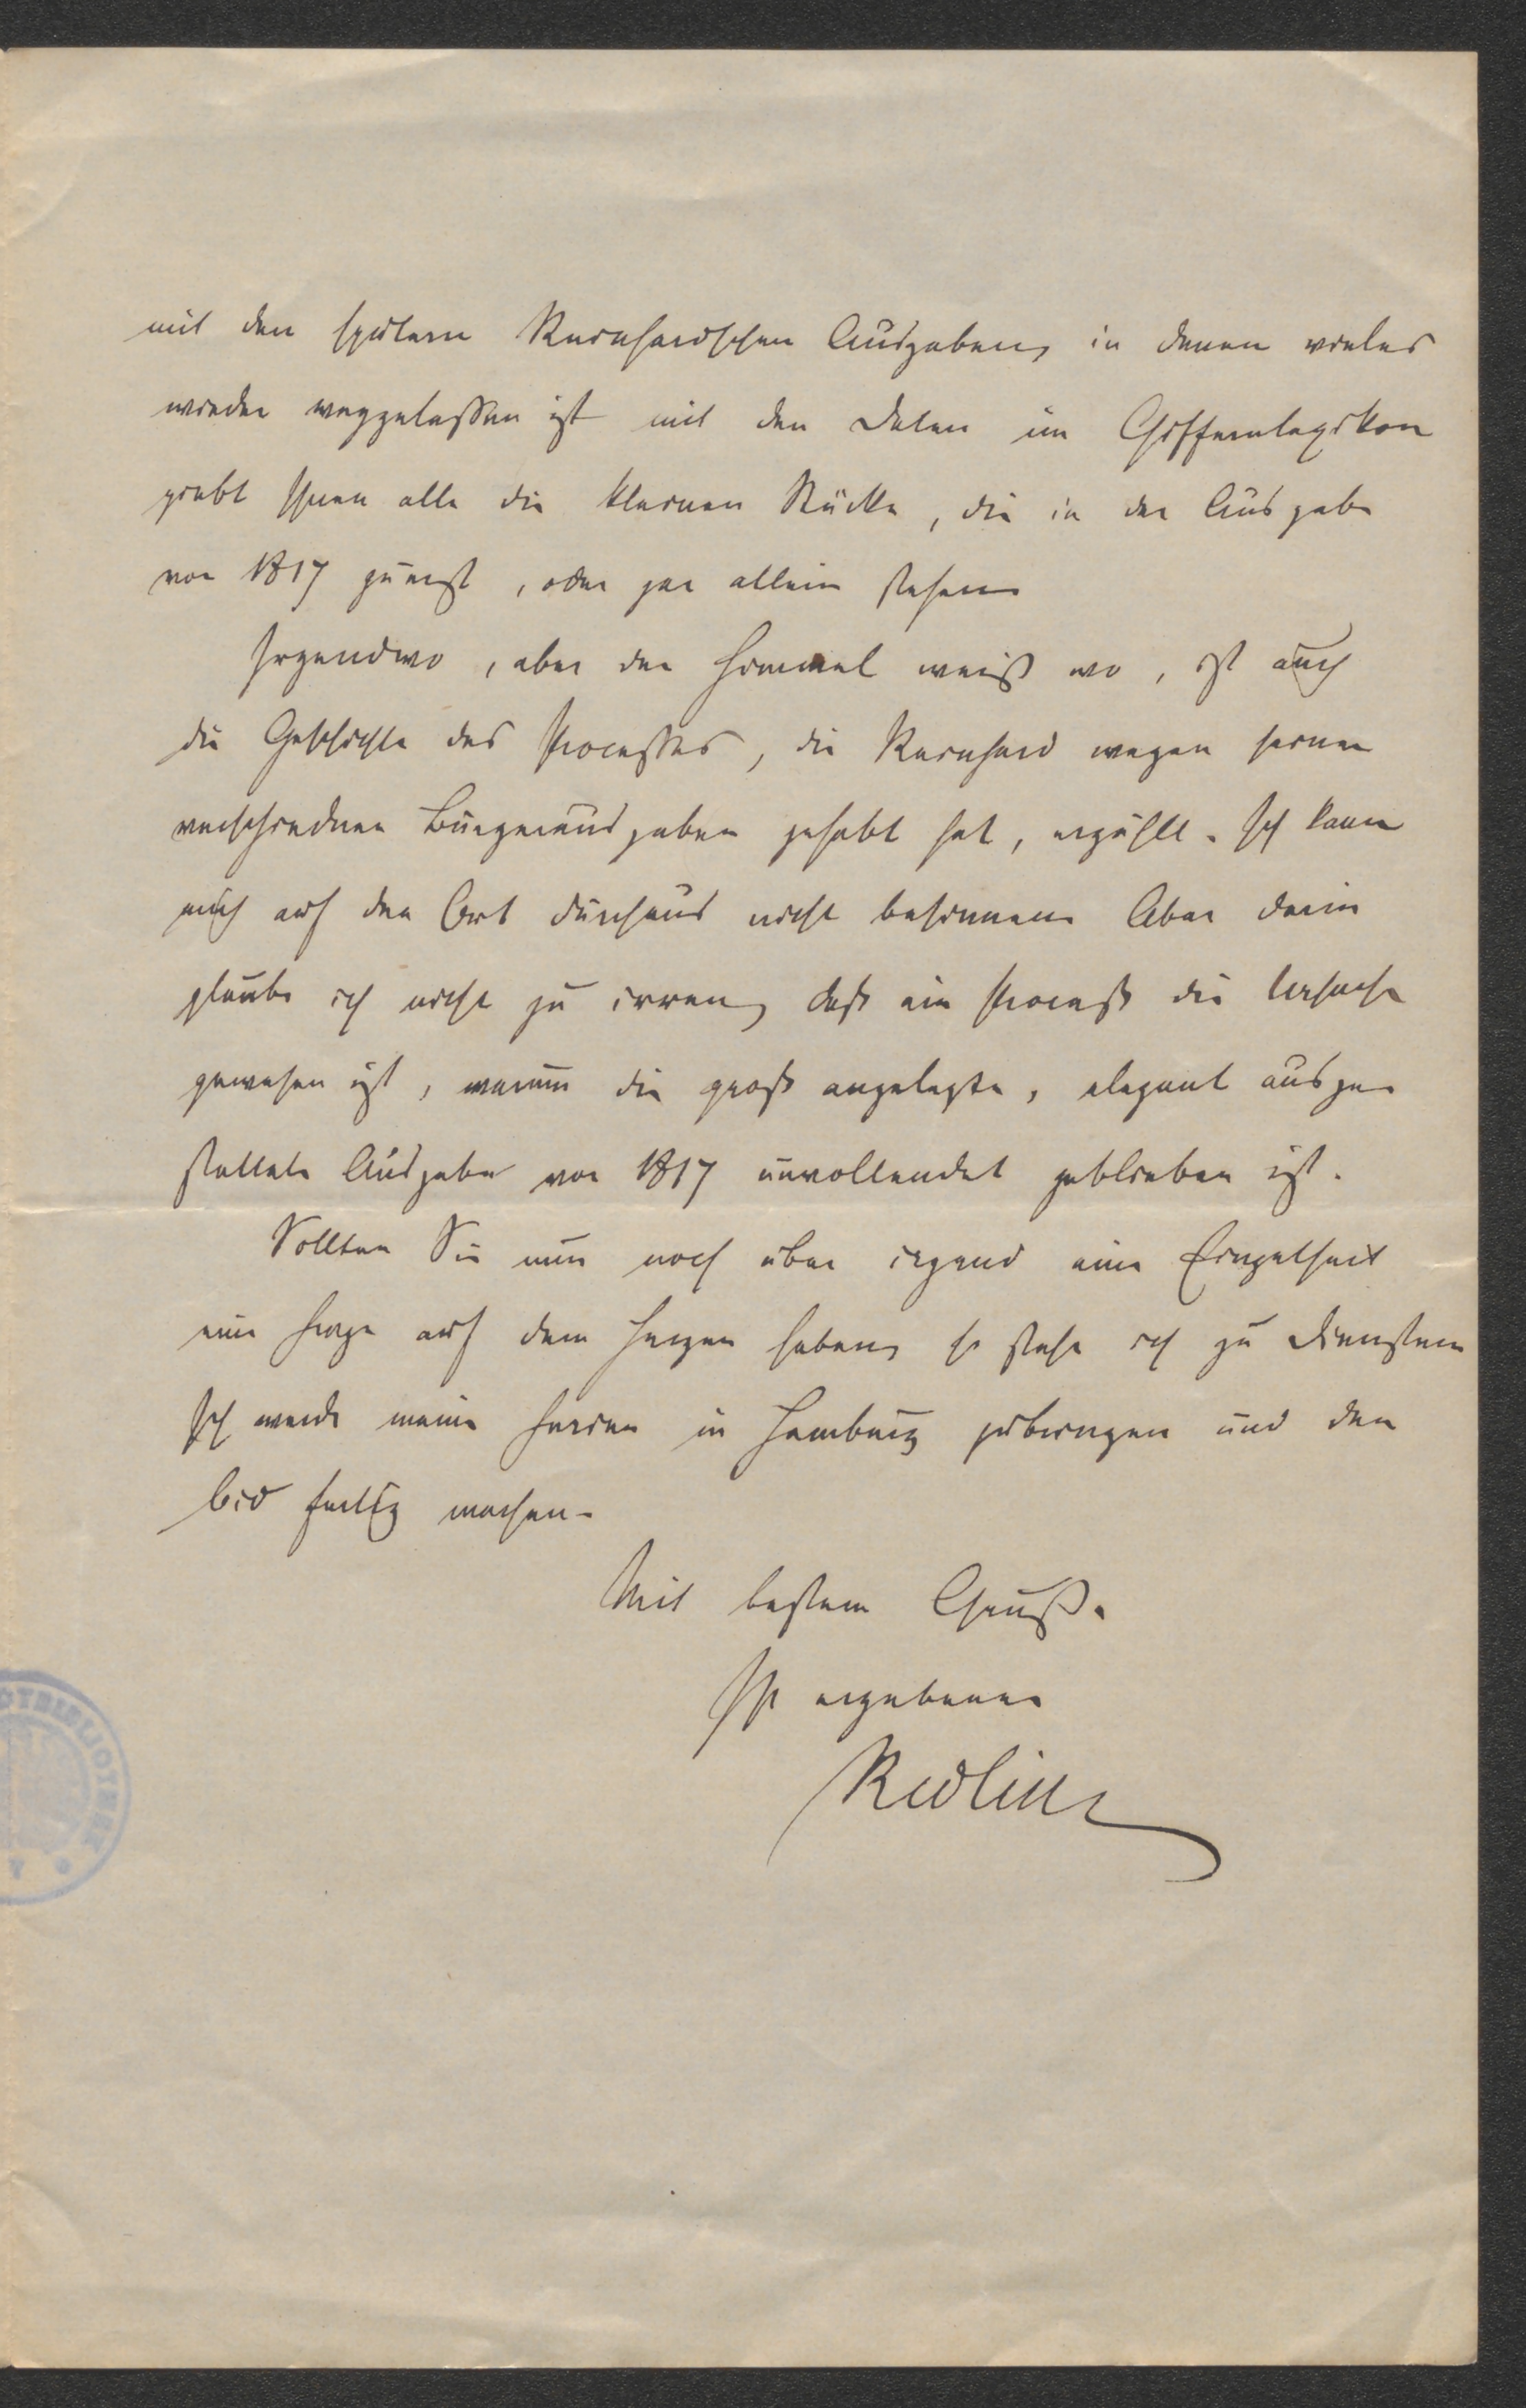 mit den spätern Reinhardschen Ausgaben, in denen vieles
wieder weggelassen ist mit den Daten im Chiffernlexikon
giebt Ihnen alle die kleinen Stücke, die in der Ausgabe
von 1817 zuerst, oder gar allein stehen.
Irgendwo, aber der Himmel weiß wo, ist auch
die Geschichte des Processes, die Reinhard wegen seiner
verschiednen Bürgerausgaben gehabt hat, erzählt. Ich kann
mich auf den Ort durchaus nicht besinnen. Aber darin
glaube ich nicht zu irren, daß ein Proceß die Ursache
gewesen ist, warum die groß angelegte, elegant ausge-
stattete Ausgabe von 1817 unvollendet geblieben ist.
Sollten Sie nun noch über irgend eine Einzelheit
eine Frage auf dem Herzen haben, so stehe ich zu Diensten.
Ich werde meine Ferien in Hamburg zubringen und den
Cid fertig machen.
Mit bestem Gruß.
Ihr ergebener
Redlich